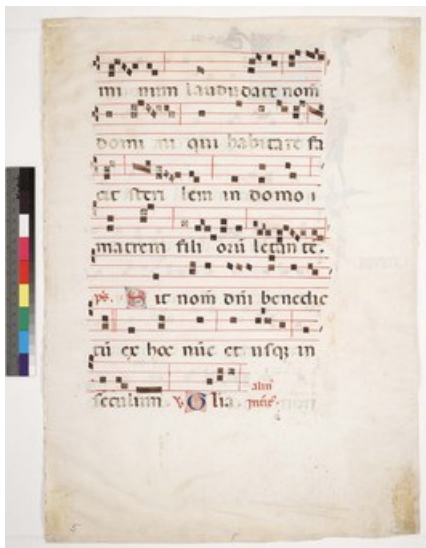 mi num laudate nom
domi ni qui habitare fa
cit steri lem in domo
matrem fili orũ letan te.
ps. Sit nom dñi benedic
tũ ex hoc nũc et usqȝ in
seculum v. Glia